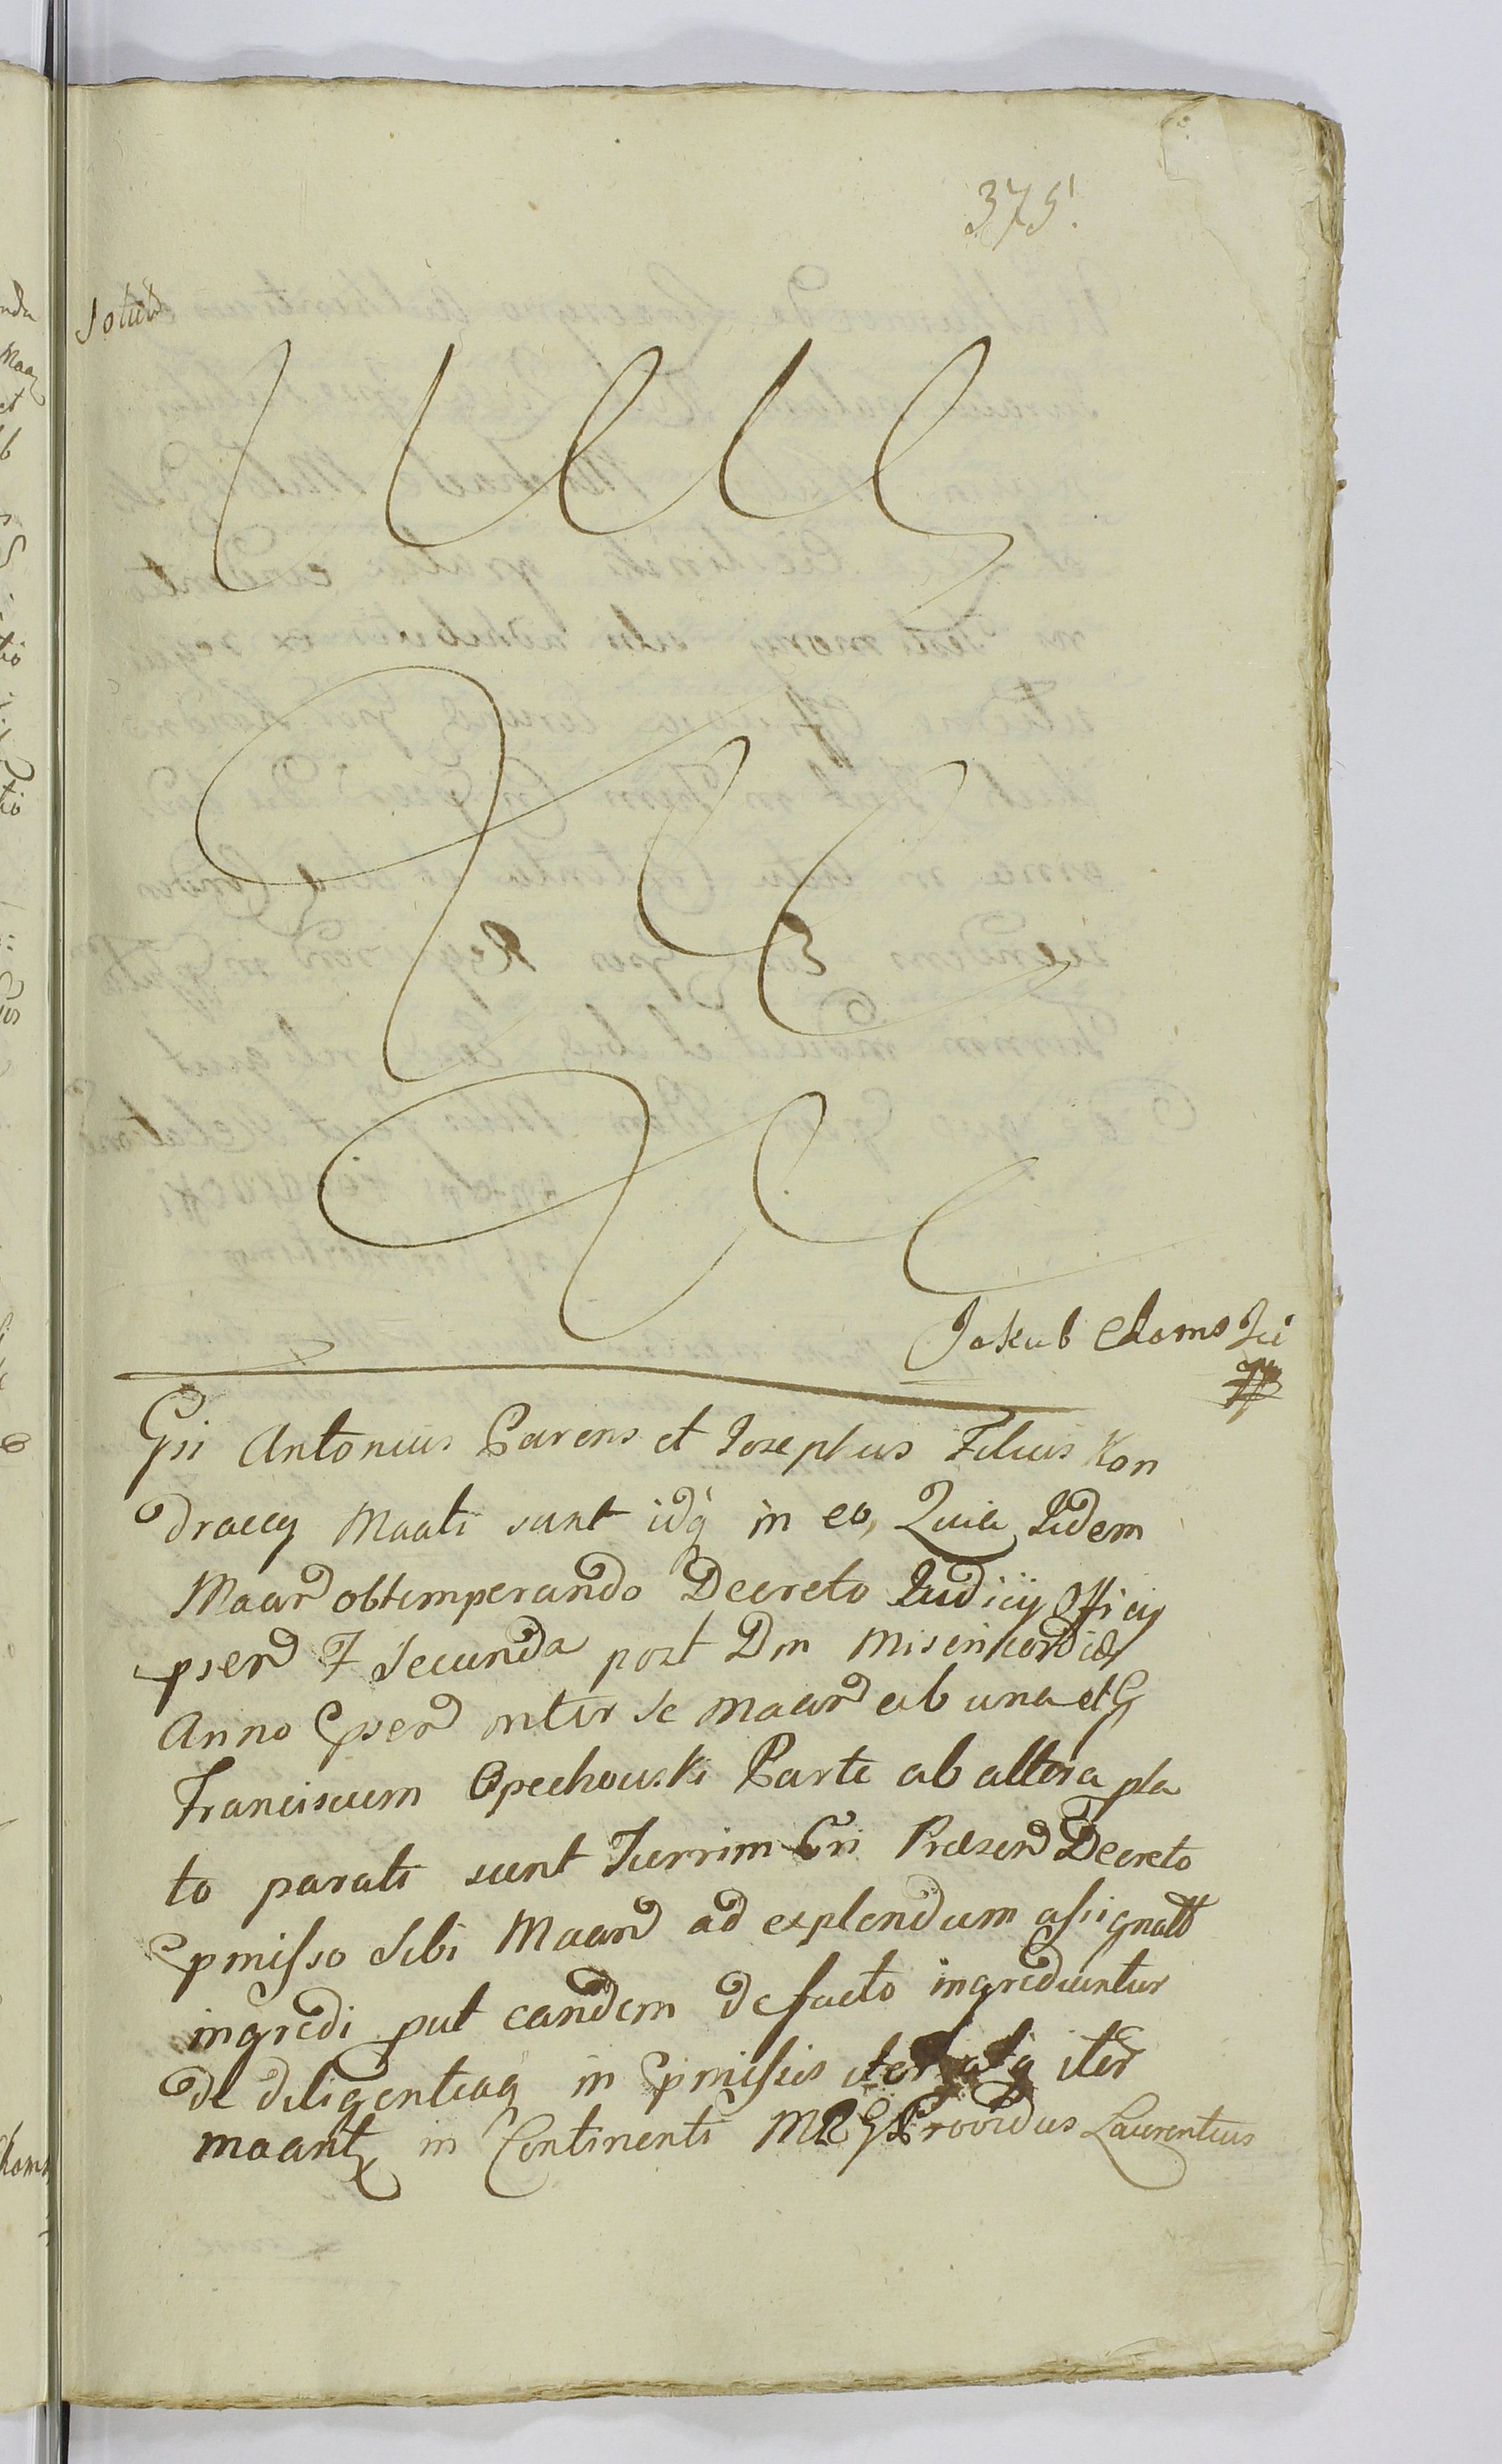 375.
Jakub Adamski
Gsi Antonius Parens et Josephus Filius Kon
draccy Maati sunt idq in eo, Quia Iidem
Maand obtemperando Decreto Judicij Officij
pserd F Secunda post Dm Misericordiæ
Anno pserd inter se Maand ab una et G
Franciscum Opechowski Parte ab altera pla
to parati sunt Turrim Cri Præsend Decreto
pmisso sibi Maand ad explendum assignatt
ingredi put eandem de facto ingrediuntur
de diligentiaq in pmissis iter
maant in Continenti MRG Providus Laurentius